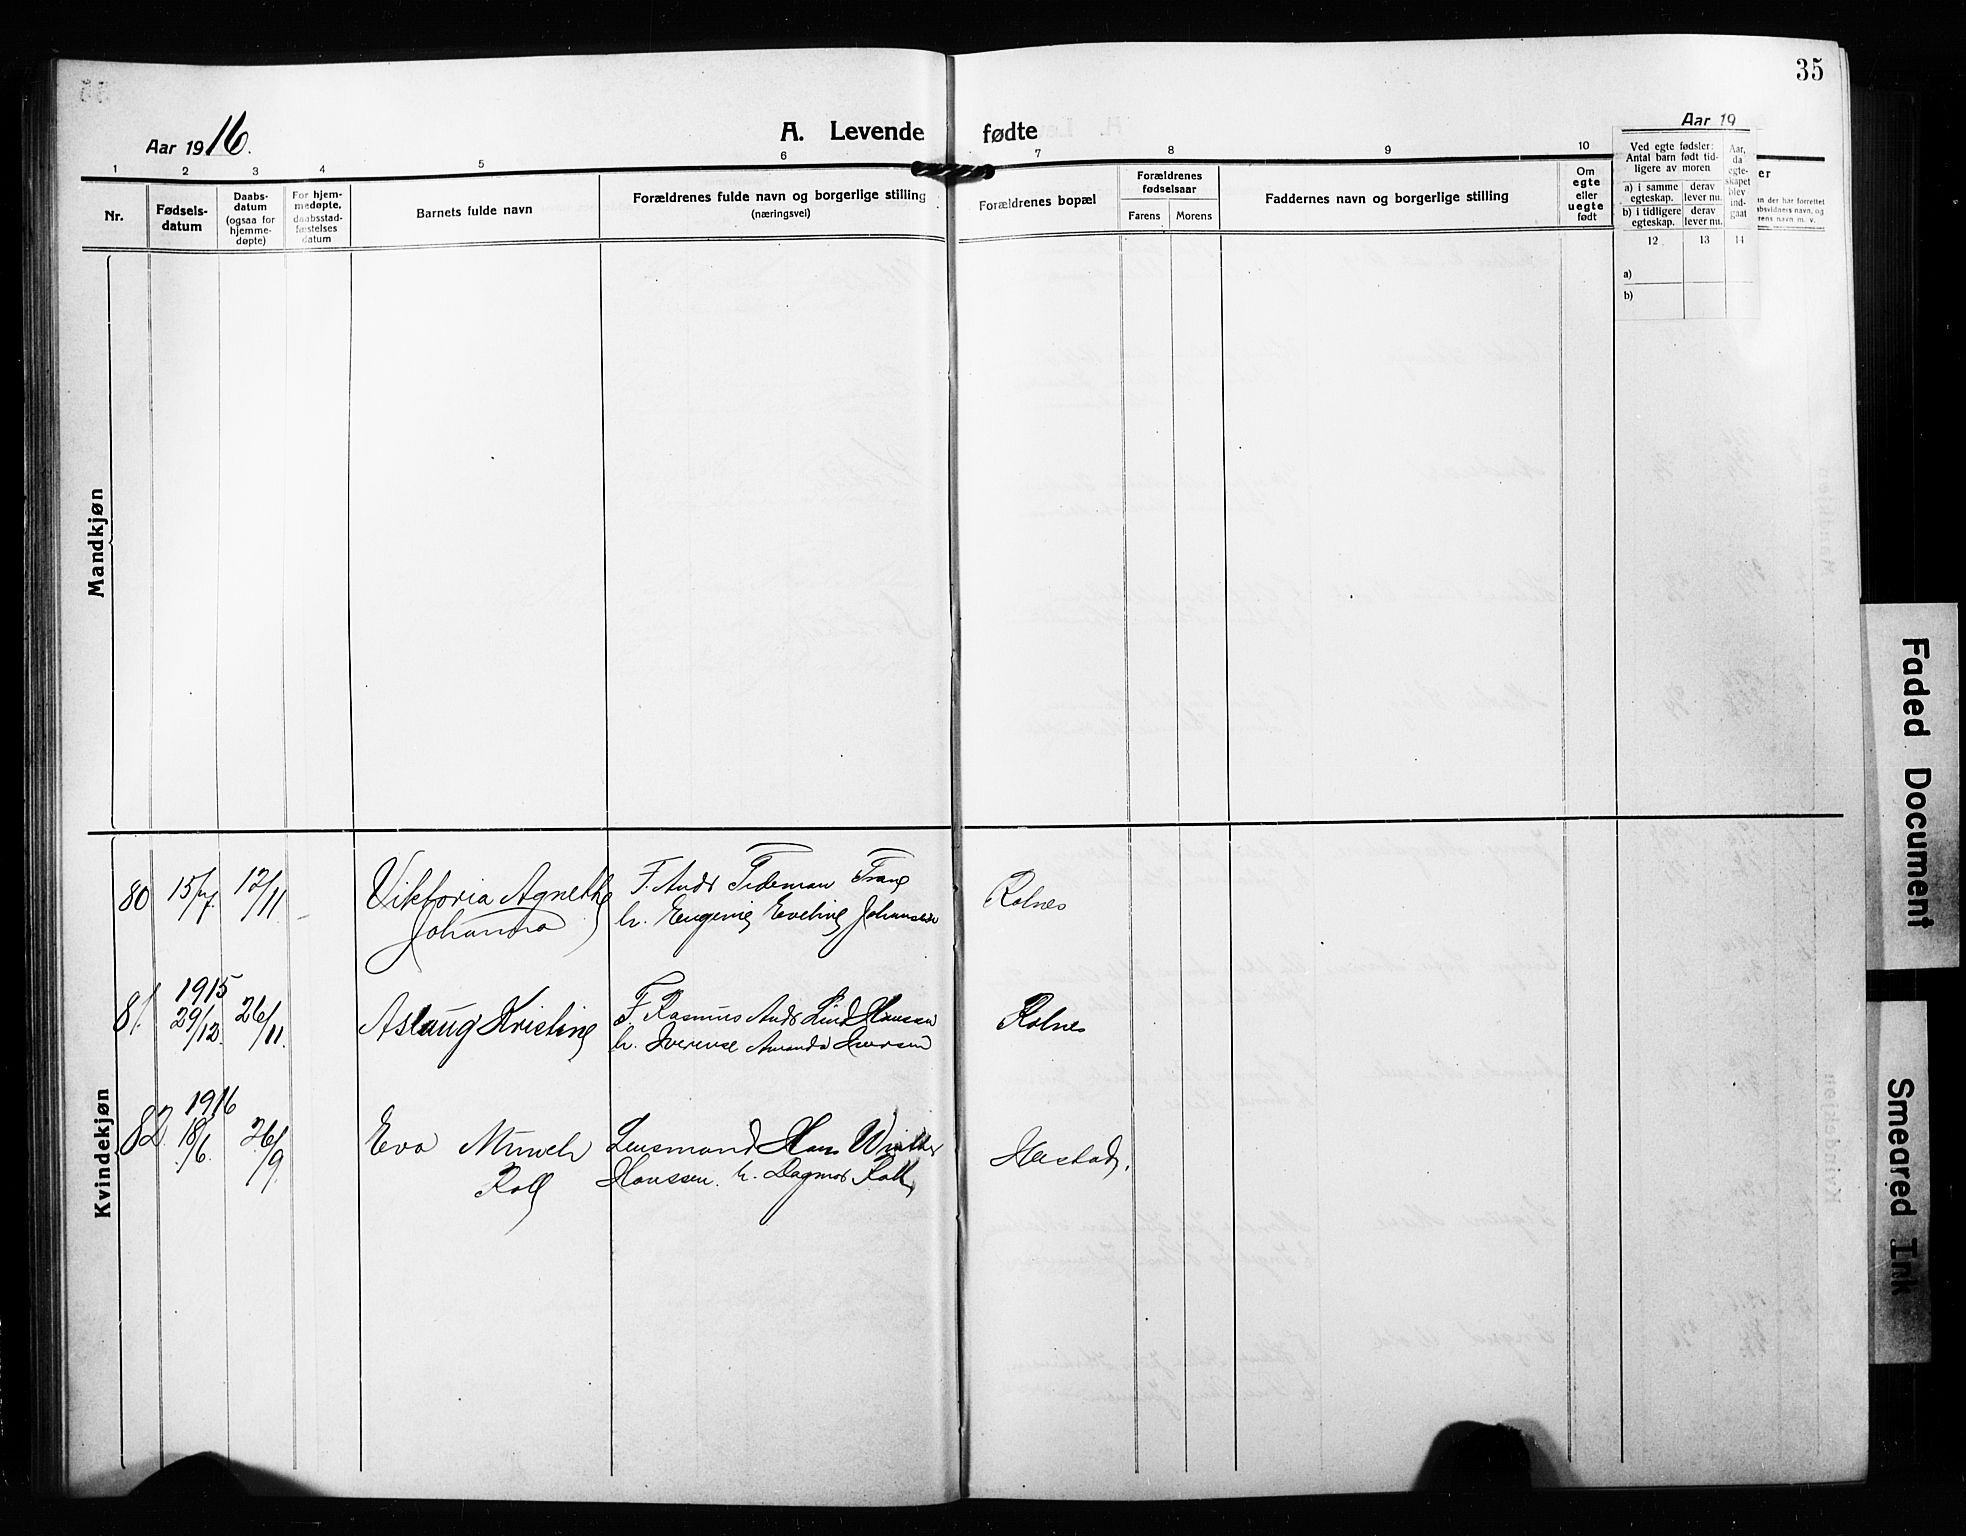 35
Aar 1916.
A. Levende fødte
Aar 19
1 2 3 4 5 6 7 8 9 10
Nr.
Fødsels-
datum
Daabs-
datum
(ogsaa for
hjemme-
døpte)
For hjem-
medøpte,
daabsstad-
fæstelses
datum
Barnets fulde navn
Forældrenes fulde navn og borgerlige stilling
(næringsvei)
Forældrenes bopæl
Forældrenes
fødselsaar
Farens Morens
Faddernes navn og borgerlige stilling
Om
egte
eller
uegte
født
Ved egte fødsler:
Antal barn født tid-
ligere av moren
a) i samme
egteskap.
derav
lever nu.
b) i tidligere
egteskap.
derav
lever nu.
Aar,
da
egte-
skapet
blev
ind-
gaat
12 13 14
a)
b)
Mandkjøn
Kvindekjøn
80 15/7. 12/11
Viktoria Agnethe
Johanna
F. Andr Tideman Frang
h. Eugenie Eveline Johansen
Rolnes
81. 1915
29/12. 26/11.
Aslaug Kristine
F. Rasmus Andr Lind Hansen
h. Iverense Amanda Iversen
Rolnes
82. 1916
18/6. 26/9.
Eva Münch
Roll
Lensmand Hans Winther
Hanssen. h. Dagmar Roll
Harstad.
Faded Document
Smeared Ink